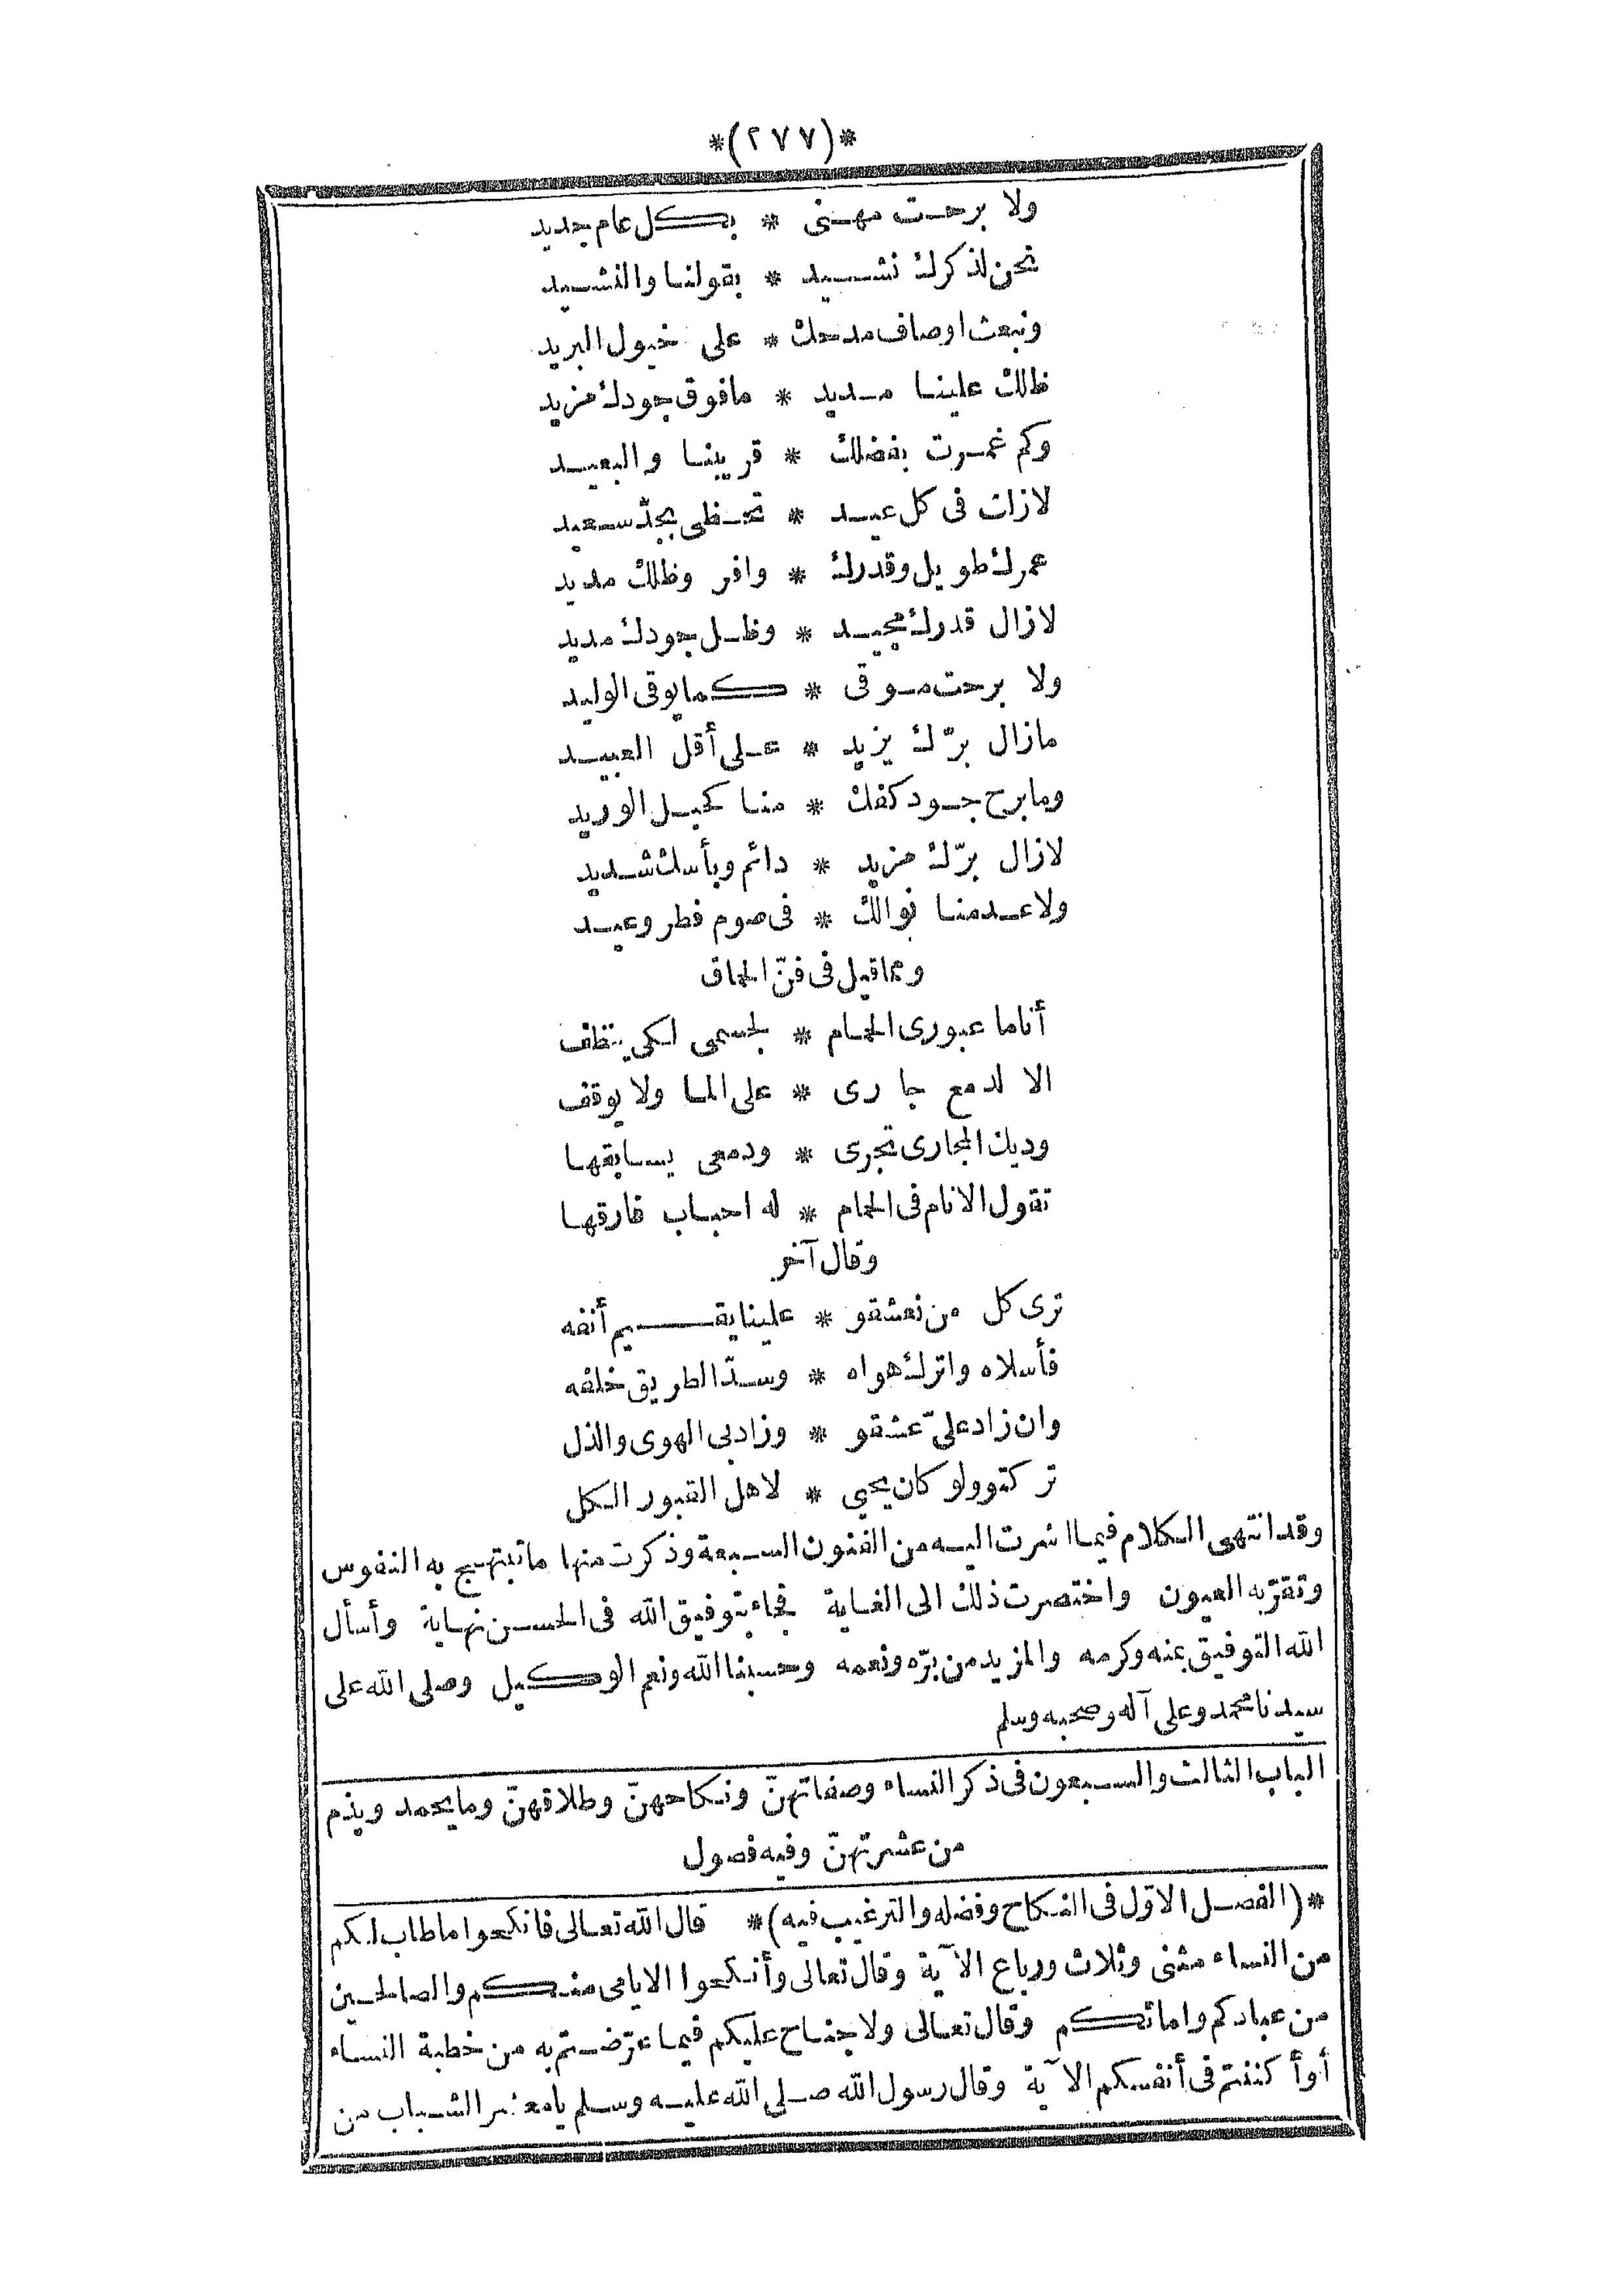 *(٢٧٧)*
ولا برحت مهنى * بكل عام جديد
نحن لذكرك نشيد * بقولنا والنشيد
ونبعث اوصاف مدحك * على خيول البريد
ظلك علينا مديد * مافوق جودك مزيد
وكم غمرت بفضلك * قريبنا والبعيد
لازلت فى كل عيد * تحظى بجدّ سعيد
عمرك طويل وقدرك * وافر وظلك مديد
لازال قدرك مجيد * وظل جودك مديد
ولا برحت موقى * كما يوقى الوليد
مازال برّك يزيد * على أقل العبيد
وما برح جود كفك * منا كحبل الوريد
لازال برّك مزيد * دائم وبأسك شديد
ولا عدمنا نوالك * فى صوم فطر وعيد
ومما قيل فى فنّ الحماق
أنا ما عبورى الحمام * لجسمى لكى ينظف
الا لدمع جارى * على الما ولا يوقف
وديك المجارى تجرى * ودمعى يسابقها
تقول الانام فى الحمام * له احباب فارقها
وقال آخر
ترى كل من نعشقو * علينا يقيم أنفه
فأسلاه واترك هواه * وسدّ الطريق خلفه
وان زاد علىّ عشقو * وزاد بى الهوى والذل
تركتو ولو كان يحيى * لاهل القبور الكل
وقد انتهى الكلام فيما اشرت اليه من الفنون السبعة وذكرت منها ما تبتهج به النفوس
وتقرّ به العيون واختصرت ذلك الى الغاية فجاء بتوفيق الله فى الحسن نهاية وأسأل
الله التوفيق بمنه وكرمه والمزيد من برّه ونعمه وحسبنا الله ونعم الوكيل وصلى الله على
سيدنا محمد وعلى آله وصحبه وسلم
الباب الثالث والسبعون فى ذكر النساء وصفاتهنّ ونكاحهنّ وطلاقهنّ وما يحمد ويذم
من عشرتهنّ وفيه فصول
*(الفصل الاوّل فى النكاح وفضله والترغيب فيه)* قال الله تعالى فانكحوا ما طاب لكم
من النساء مثنى وثلاث ورباع الآية وقال تعالى وأنكحوا الايامى منكم والصالحين
من عبادكم وامائكم وقال تعالى ولا جناح عليكم فيما عرّضتم به من خطبة النساء
أو أكننتم فى أنفسكم الآية وقال رسول الله صلى الله عليه وسلم يا معشر الشباب من